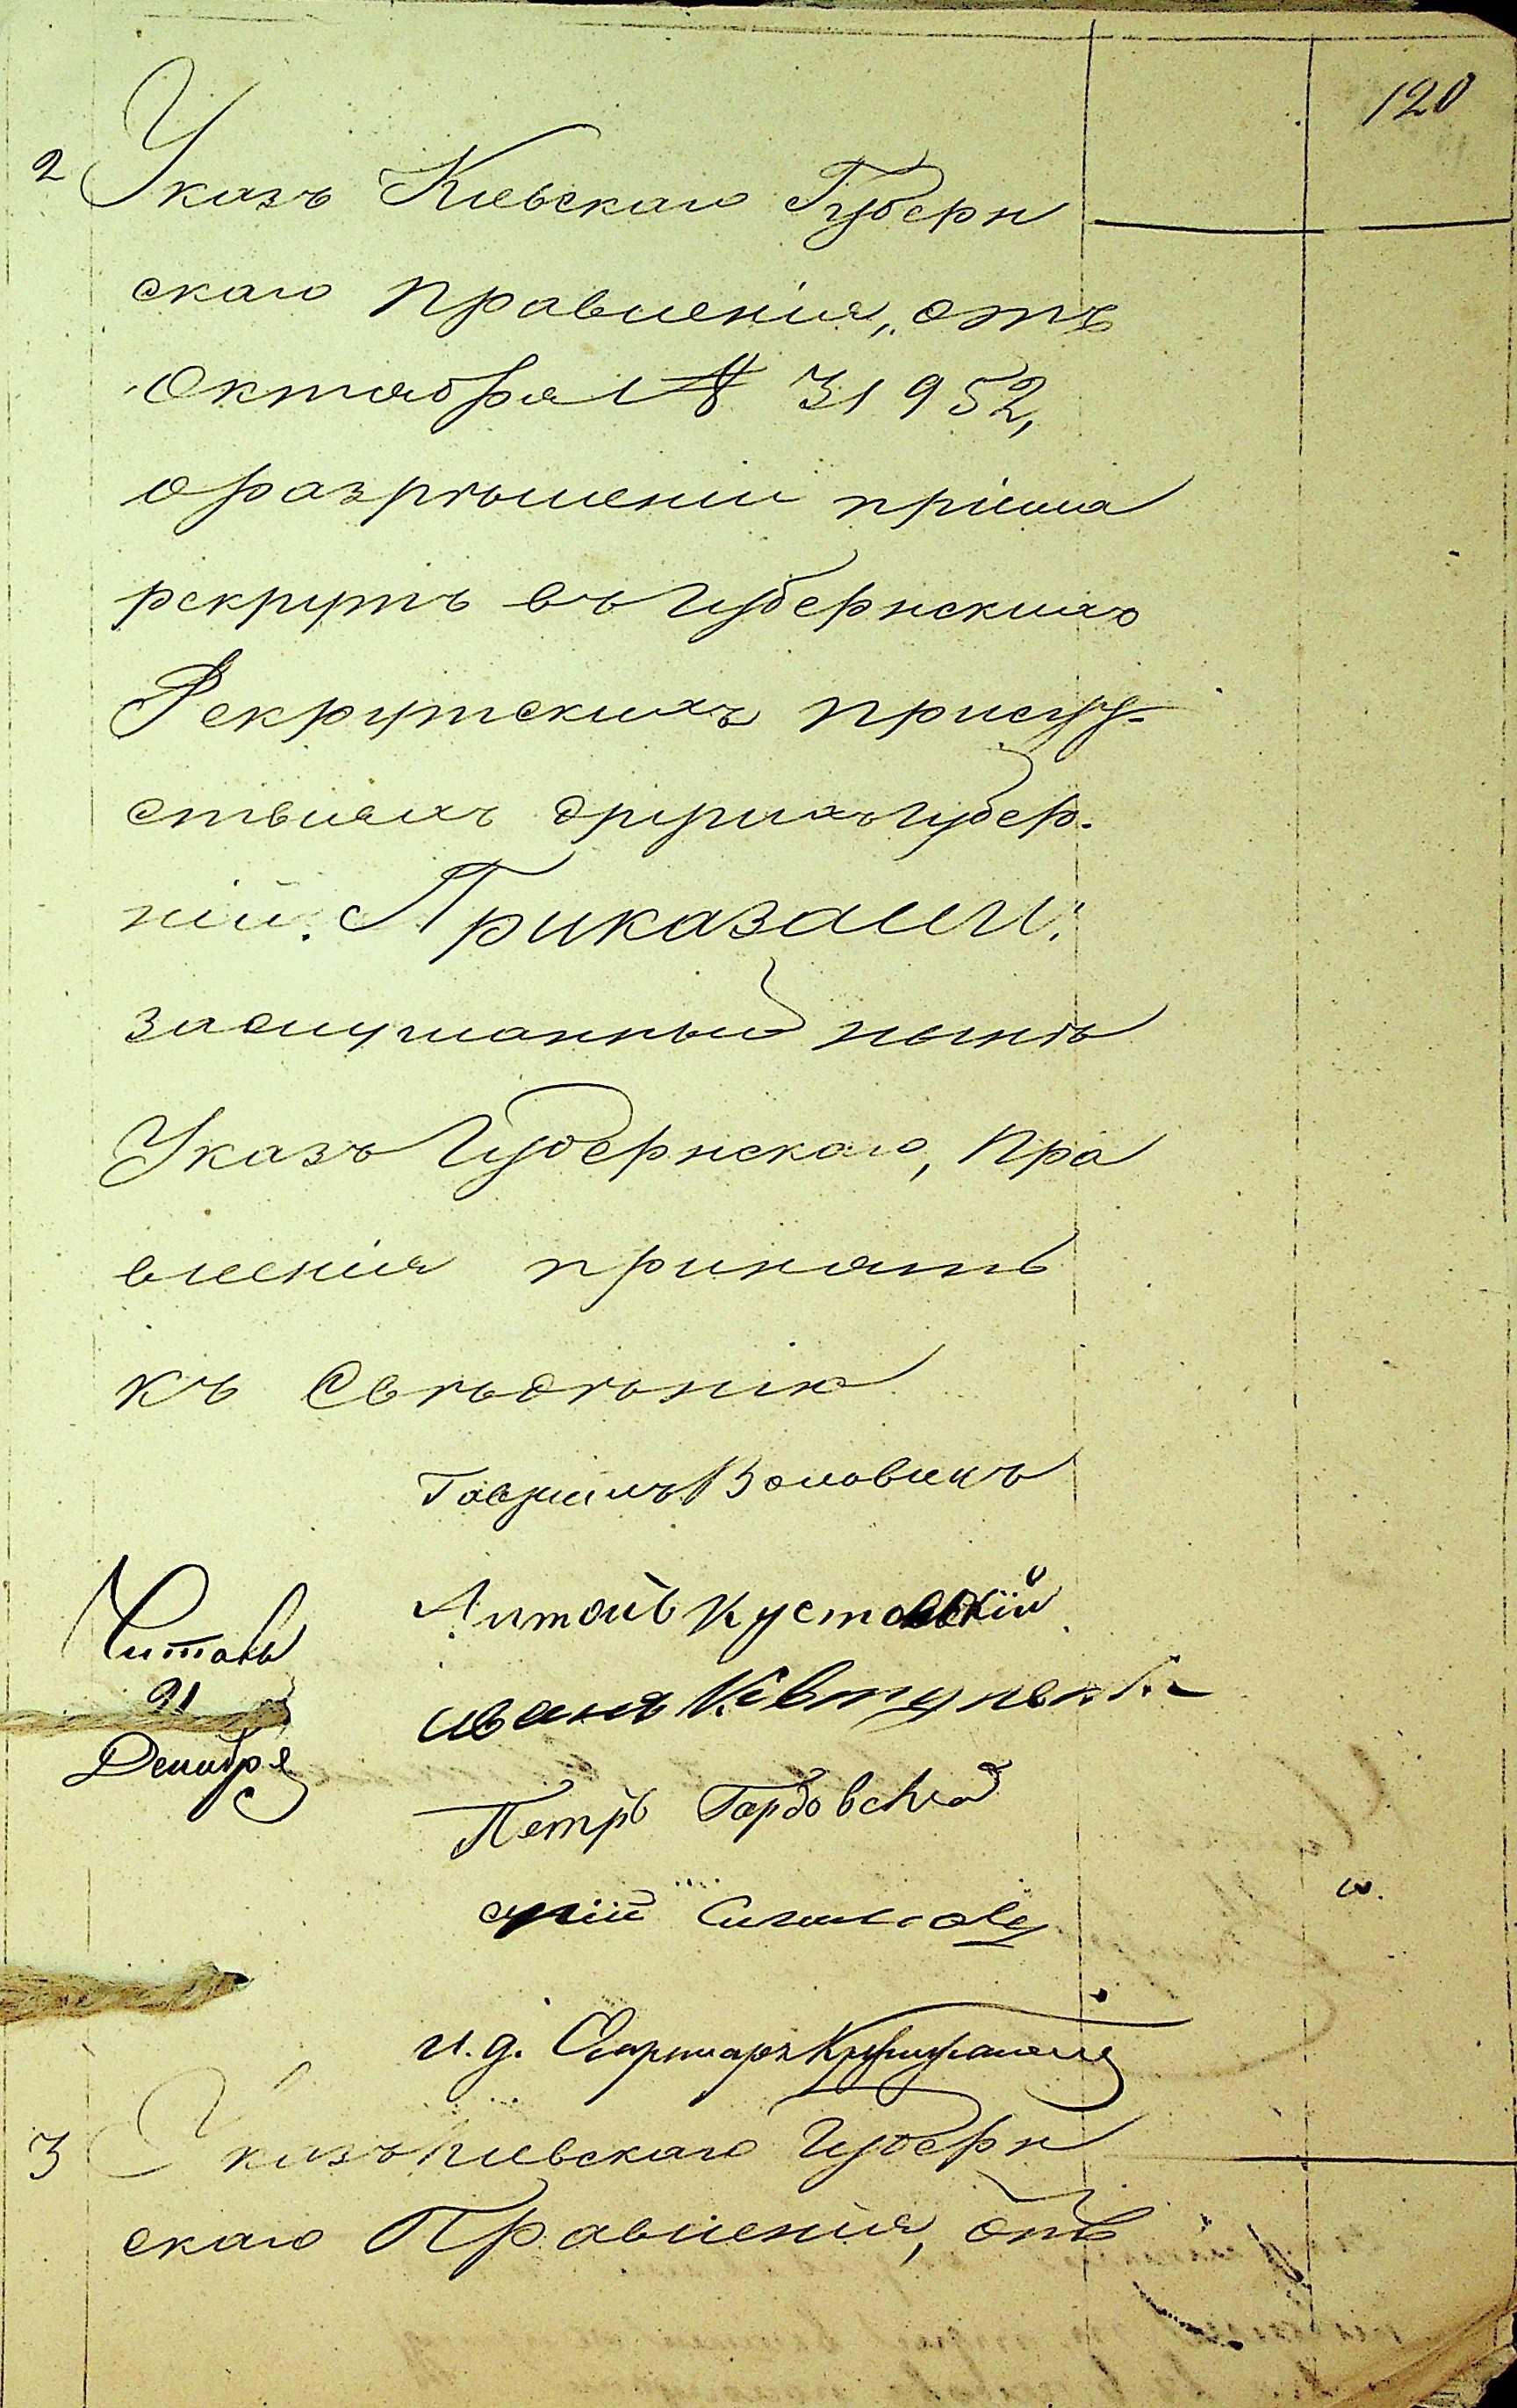 120
2 Указъ Кіевскаго Губерн
скаго правленія, отъ
Октября № 31952,
о разрѣшеніи пріема
рекрутъ въ губернскихъ
Рекрутскихъ присут-
ствіяхъ другихъ губер.
ній. Приказали:
заслушанный нынѣ
Указъ Губернскаго, Пра
вленія принять
къ Свѣдѣнію
Гавриилъ
Антонъ Кустовскій
Иванъ
Читалъ
21
Декабря
Петръ
и. д. Секретаря
3 Указъ Кіевскаго Губерн
скаго Правленія, отъ